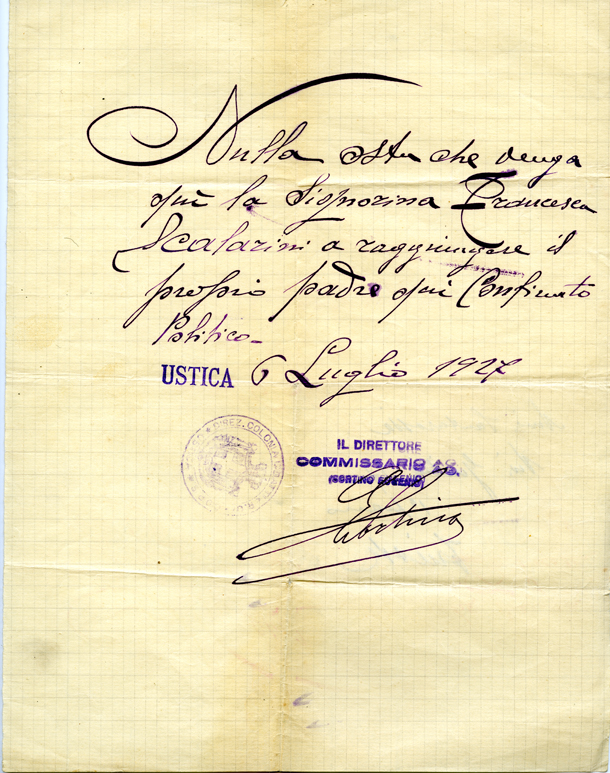 Nulla osta che venga
qui la Signorina Francesca
Scalarini a raggiungere il
proprio padre qui Confinato
Politico_
USTICA 6 Luglio 1927
DIREZ. COLONIA
IL DIRETTORE
COMMISSARIO
(CORTINO EUGENIO)
ECortino